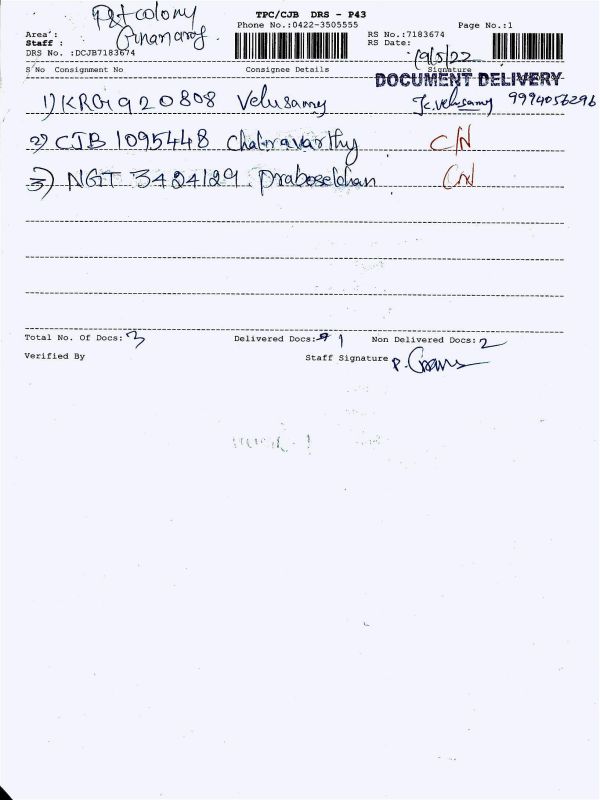 P&t colony
TPC/CJB DRS - P43
Area :
Phone No.:0422-3505555
Page No.:1
Staff :
RS No.:7183674
RS Date: 19/5/22
DRS No. :DCJB7183674
S No Consignment No Consignee Details Signature
DOCUMENT DELIVERY
1) KRG 920808 Velusamy K.velusamy 9994056296
2) CJB 1095448 Chakravarthy C/N
3) NGT 3424129. Praboselchan C/N
Total No. Of Docs: 3 Delivered Docs: 1 Non Delivered Docs: 2
Verified By Staff Signature P.